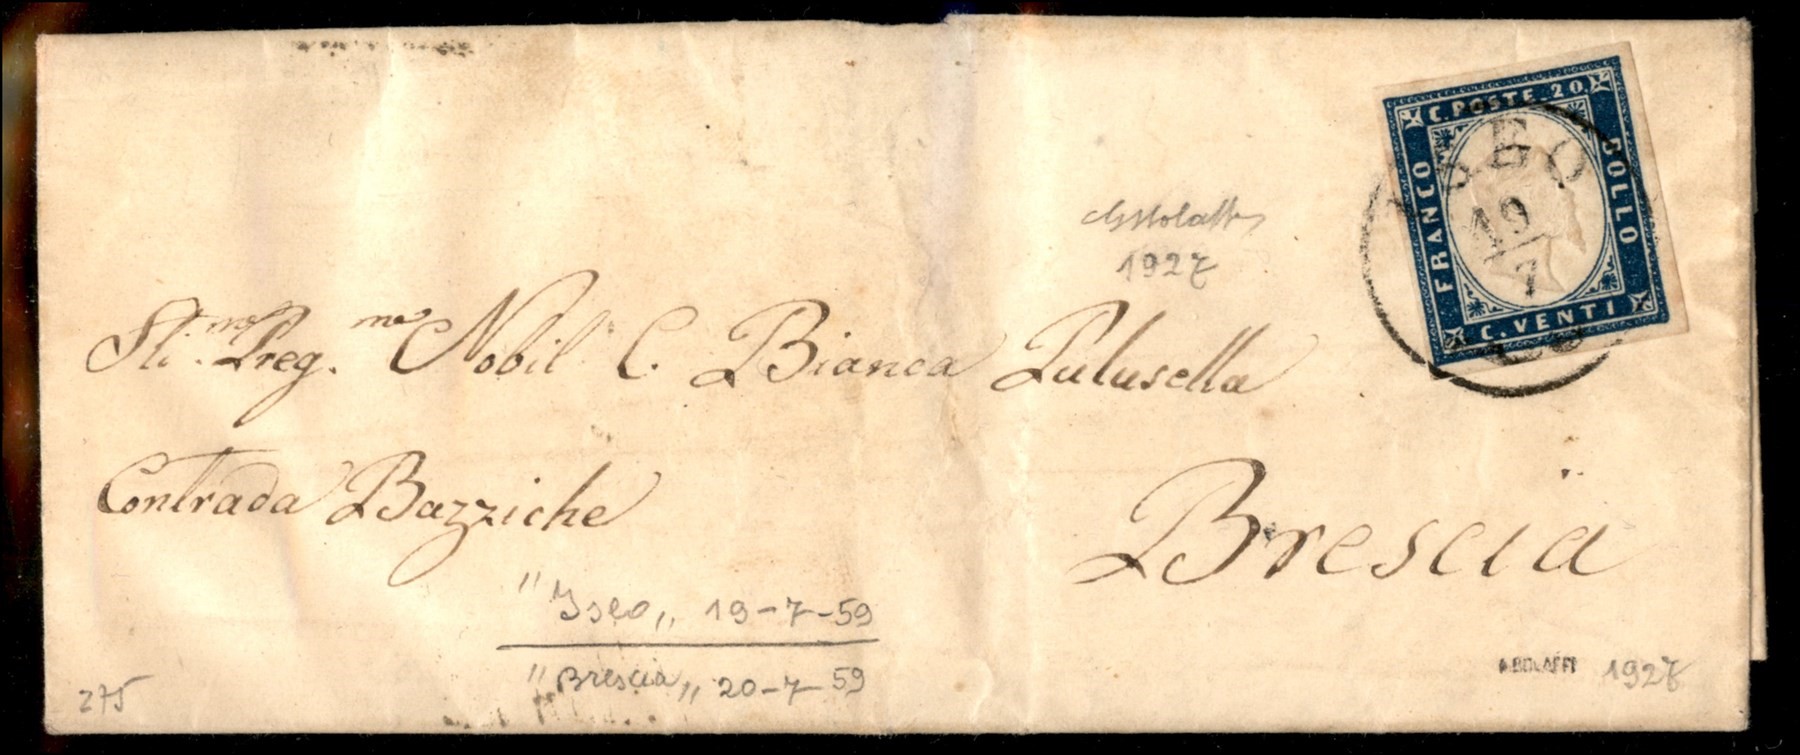 C. POSTE 20
FRANCO
BOLLO
C. VENTI
ISEO
19
7
1927
Sti.ma Preg.ma Nobil C. Bianca Palusella
Contrada Bazziche
Brescia
"Iseo„ 19-7-59
"Brescia„ 20-7-59
275
A. BOLAFFI 1927